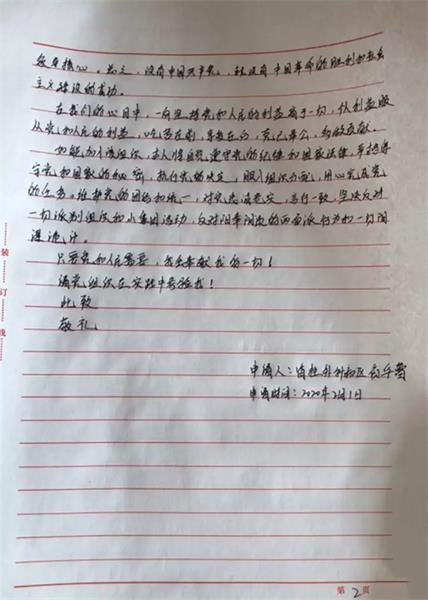 领导核心。总之，没有中国共产党，就没有中国革命的胜利和社会
主义建设的成功。
在我们的心目中，一向坚持党和人民的利益高于一切，个人利益服
从党和人民的利益，吃苦在前，享受在后，克己奉公，多做贡献。
如能加入党组织，本人将自觉遵守党的纪律和国家法律，严格保
守党和国家的秘密，执行党的决定，服从组织分配，用心完成党
的任务，维护党的团结和统一，对党忠诚老实，言行一致，坚决反对
一切派别组织和小集团活动，反对阳奉阴违的两面派行为和一切阴
谋诡计。
只要党和人民需要，我会奉献我的一切！
请党组织在实践中考验我！
此致
敬礼
申请人：
申请时间：2020年2月1日
装订线
第2页